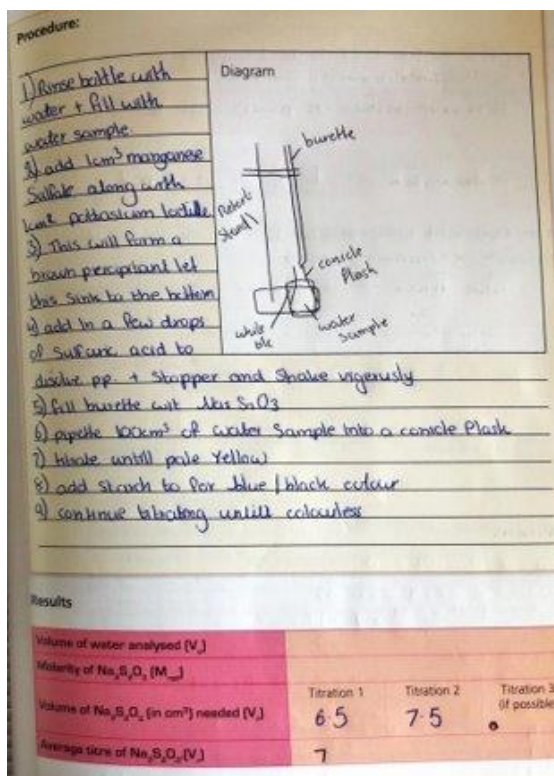 Procedure:
1) Rinse bottle with
water + fill with
water sample
2) add 1cm³ manganese
Sulfate along with
1cm³ pottasium Iodide
3) This will form a
brown percipitant let
this sink to the bottom
4) add in a few drops
of Sulfuric acid to
disolve pp. + Stopper and Shake vigerusly
5) fill burette wit
6) pipette 100cm³ of water Sample into a conicle flask
7) titrate untill pale Yellow
8) add starch to for blue/black colour
9) continue titrating untill colourless
Diagram
burette
Retort
Stand
conicle
flask
white
tile
water
sample
Results
Volume of water analysed (Vₒ)
Molarity of Na₂S₂O₃
Volume of Na₂S₂O₃ (in cm³) needed (Vᵣ)
Titration 1
Titration 2
Titration 3
(if possible
6.5
7.5
Average titre of Na₂S₂O₃ (Vᵣ)
7